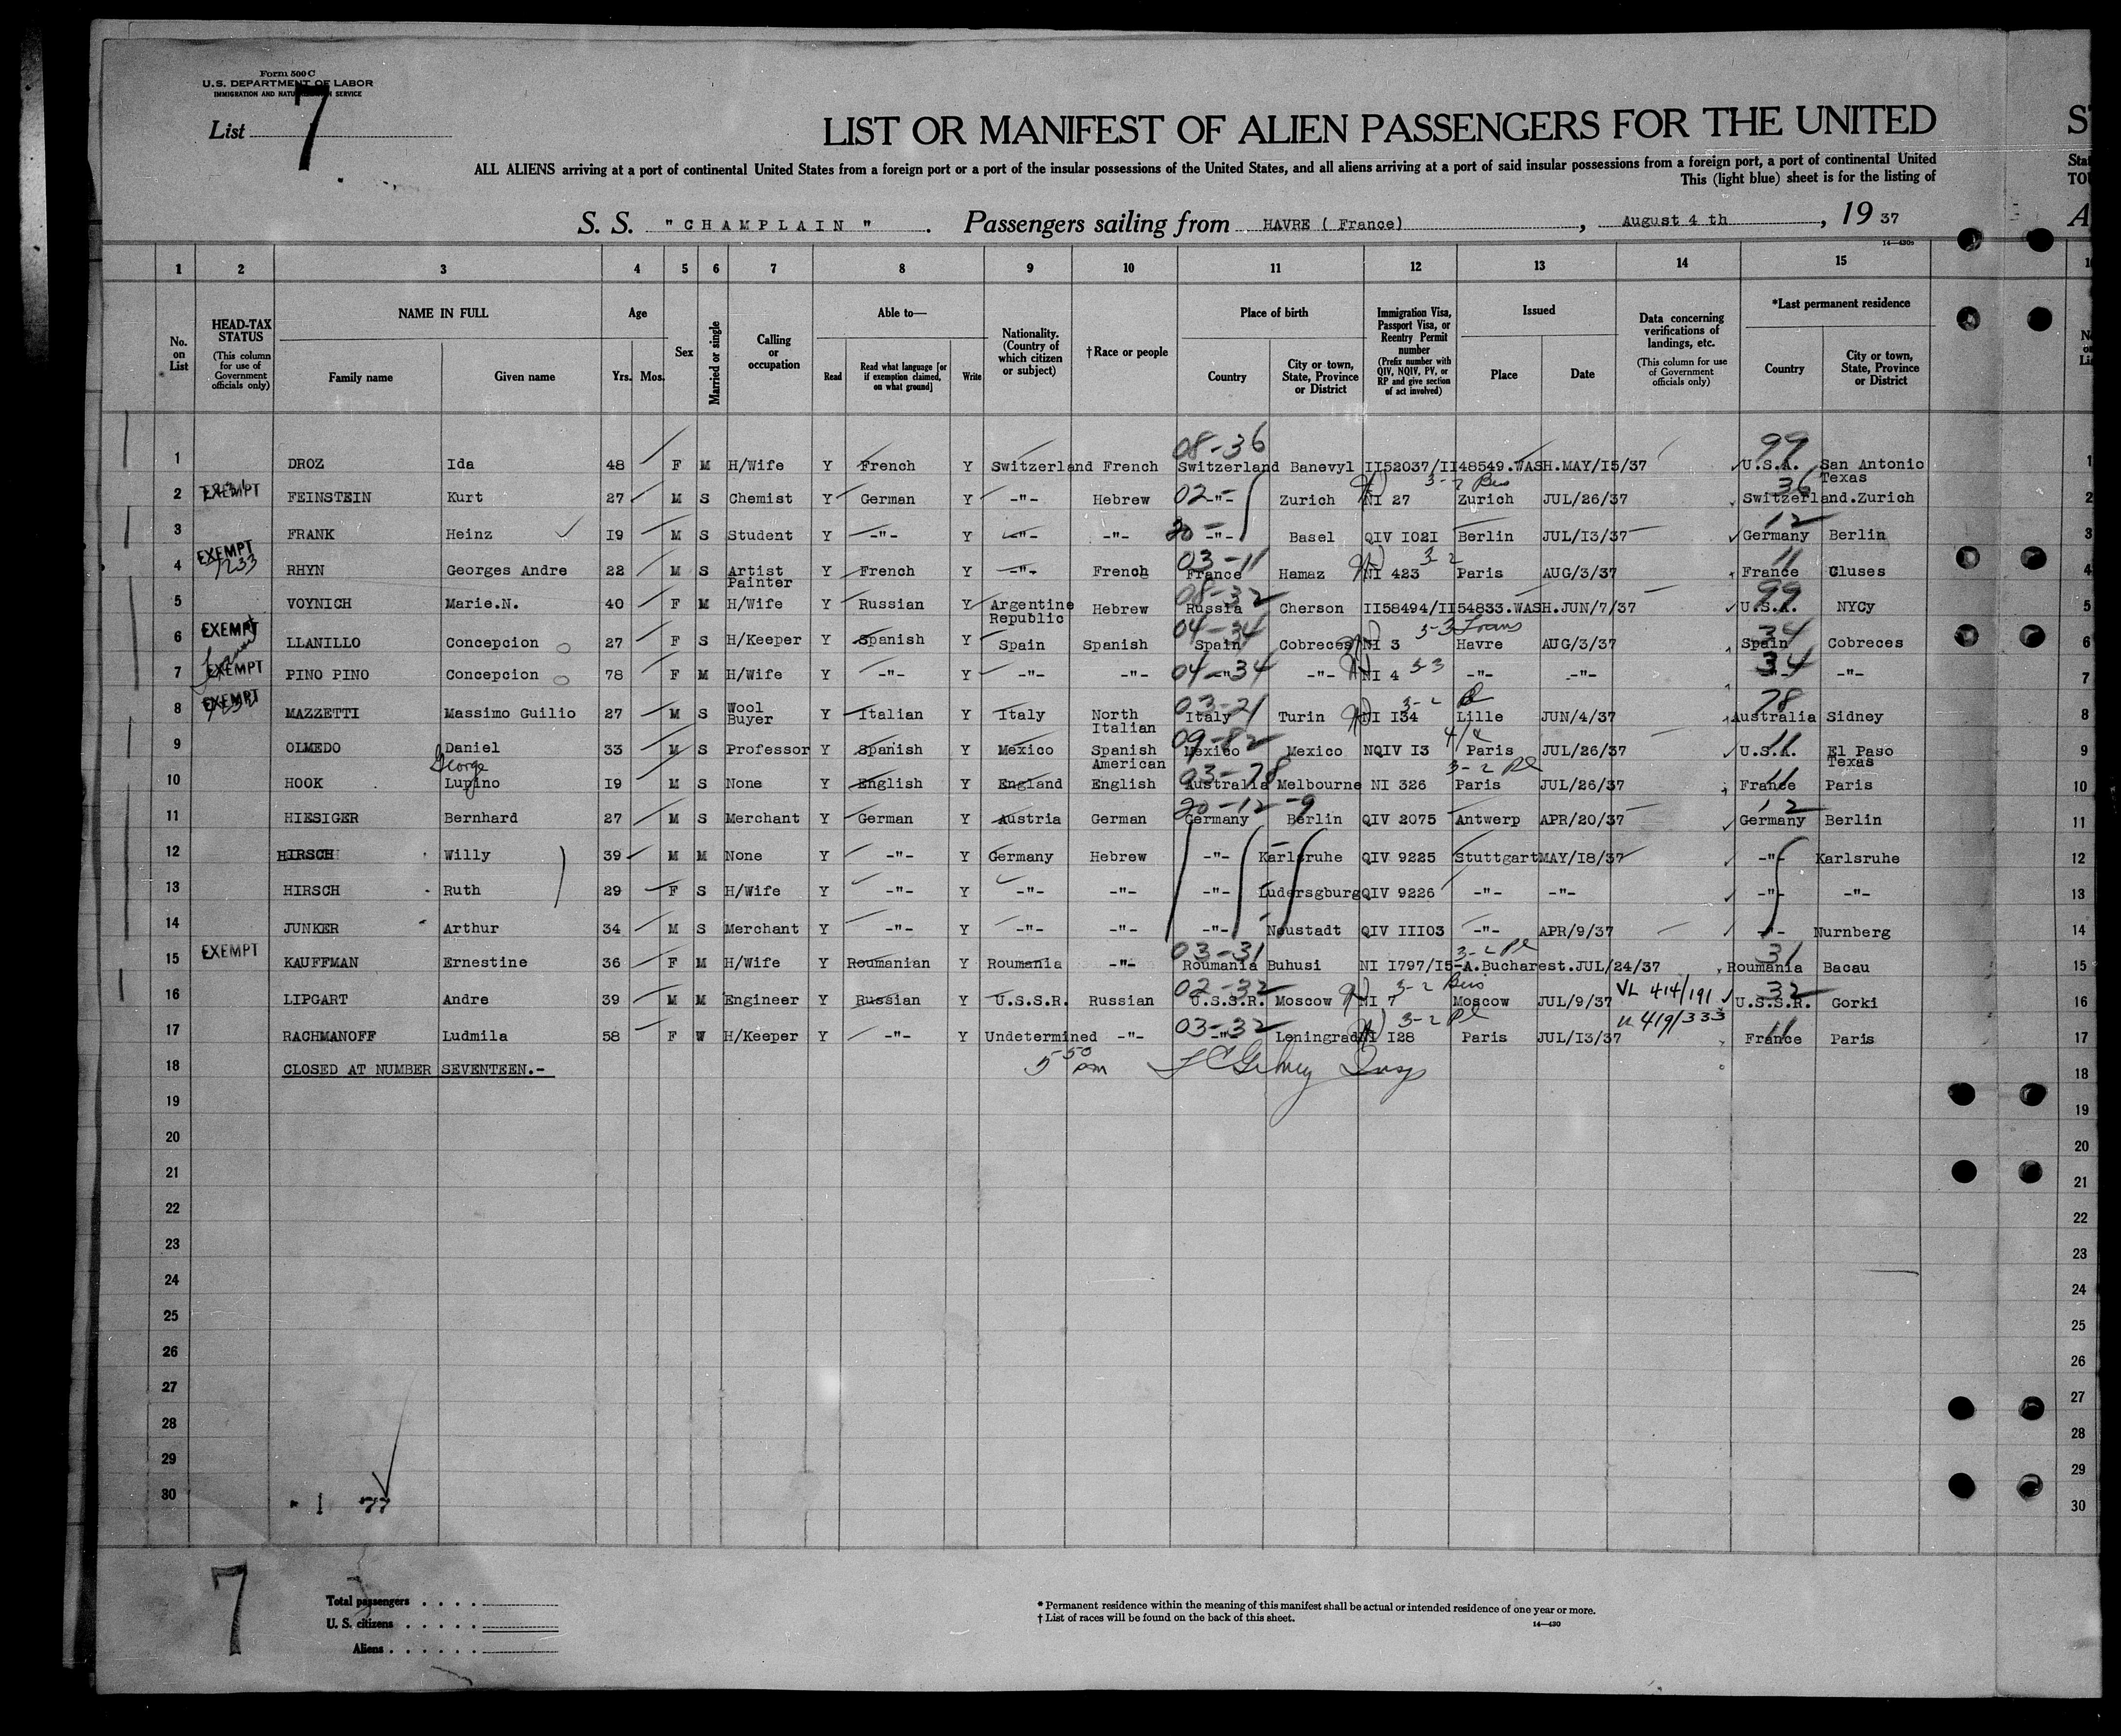 Form 500 C
U. S. DEPARTMENT OF LABOR
IMMIGRATION AND NATURALIZATION SERVICE
List 7
LIST OR MANIFEST OF ALIEN PASSENGERS FOR THE UNITED
ALL ALIENS arriving at a port of continental United States from a foreign port or a port of the insular possessions of the United States, and all aliens arriving at a port of said insular possessions from a foreign port, a port of continental United
This (light blue) sheet is for the listing of
S. S. "CHAMPLAIN". Passengers sailing from HAVRE ( France), August 4 th, 19 37
1 2 3 4 5 6 7 8 9 10 11 12 13 14 15
No. on List
HEAD-TAX STATUS (This column for use of Government officials only)
NAME IN FULL Family name Given name
Age Yrs. Mos.
Sex
Married or single
Calling or occupation
Able to— Read Read what language [or if exemption claimed, on what ground] Write
Nationality. (Country of which citizen or subject)
†Race or people
Place of birth Country City or town, State, Province or District
Immigration Visa, Passport Visa, or Reentry Permit number (Prefix number with QIV, NQIV, PV, or RP and give section of act involved)
Issued Place Date
Data concerning verifications of landings, etc. (This column for use of Government officials only)
*Last permanent residence Country City or town, State, Province or District
08-36 99
1 DROZ Ida 48 F M H/Wife Y French Y Switzerland French Switzerland Banevyl II52037/II48549.WASH.MAY/I5/37 U.S.A. San Antonio Texas
2 EXEMPT FEINSTEIN Kurt 27 M S Chemist Y German Y -"- Hebrew 02 -"- Zurich NI 27 3-2 Bus Zurich JUL/26/37 36 Switzerland.Zurich
3 FRANK Heinz I9 M S Student Y -"- Y -"- -"- 20 -"- Basel QIV I02I Berlin JUL/I3/37 12 Germany Berlin
4 EXEMPT RHYN Georges Andre 22 M S Artist Painter Y French Y -"- French 03-11 France Hamaz NI 423 3-2 Paris AUG/3/37 11 France Cluses
5 VOYNICH Marie.N. 40 F M H/Wife Y Russian Y Argentine Republic Hebrew 08-32 Russia Cherson II58494/II54833.WASH.JUN/7/37 99 U.S.A. NYCy
6 EXEMPT LLANILLO Concepcion 27 F S H/Keeper Y Spanish Y Spain Spanish 04-34 Spain Cobreces NI 3 3-3 Trans Havre AUG/3/37 34 Spain Cobreces
7 EXEMPT PINO PINO Concepcion 78 F M H/Wife Y -"- Y -"- -"- 04-34 -"- -"- NI 4 3-3 -"- -"- 34 -"- -"-
8 EXEMPT MAZZETTI Massimo Guilio 27 M S Wool Buyer Y Italian Y Italy North Italian 03-21 Italy Turin NI I34 3-2 Lille JUN/4/37 78 Australia Sidney
9 OLMEDO Daniel 33 M S Professor Y Spanish Y Mexico Spanish American 09-82 Mexico Mexico NQIV I3 Paris JUL/26/37 U.S.A. El Paso Texas
George
10 HOOK Lupino I9 M S None Y English Y England English 03-78 Australia Melbourne NI 326 3-2 Pl Paris JUL/26/37 11 France Paris
11 HIESIGER Bernhard 27 M S Merchant Y German Y Austria German 20-12-9 Germany Berlin QIV 2075 Antwerp APR/20/37 12 Germany Berlin
12 HIRSCH Willy 39 M M None Y -"- Y Germany Hebrew -"- Karlsruhe QIV 9225 Stuttgart MAY/I8/37 -"- Karlsruhe
13 HIRSCH Ruth 29 F S H/Wife Y -"- Y -"- -"- -"- Ludersgburg QIV 9226 -"- -"- -"- -"-
14 JUNKER Arthur 34 M S Merchant Y -"- Y -"- -"- -"- Neustadt QIV III03 -"- APR/9/37 -"- Nurnberg
15 EXEMPT KAUFFMAN Ernestine 36 F M H/Wife Y Roumanian Y Roumania -"- 03-31 Roumania Buhusi NI I797/I5-A.Bucharest.JUL/24/37 3-2 Pl 31 Roumania Bacau
16 LIPGART Andre 39 M M Engineer Y Russian Y U.S.S.R. Russian 02-32 U.S.S.R. Moscow NI 7 3-2 Bus Moscow JUL/9/37 VL 414/191 32 U.S.S.R. Gorki
17 RACHMANOFF Ludmila 58 F W H/Keeper Y -"- Y Undetermined -"- 03-32 -"- Leningrad NI I28 3-2 Pl Paris JUL/I3/37 419/333 11 France Paris
18 CLOSED AT NUMBER SEVENTEEN.- 5 50 pm
19
20
21
22
23
24
25
26
27
28
29
30
7
Total passengers
U. S. citizens
Aliens
* Permanent residence within the meaning of this manifest shall be actual or intended residence of one year or more.
† List of races will be found on the back of this sheet.
14—430